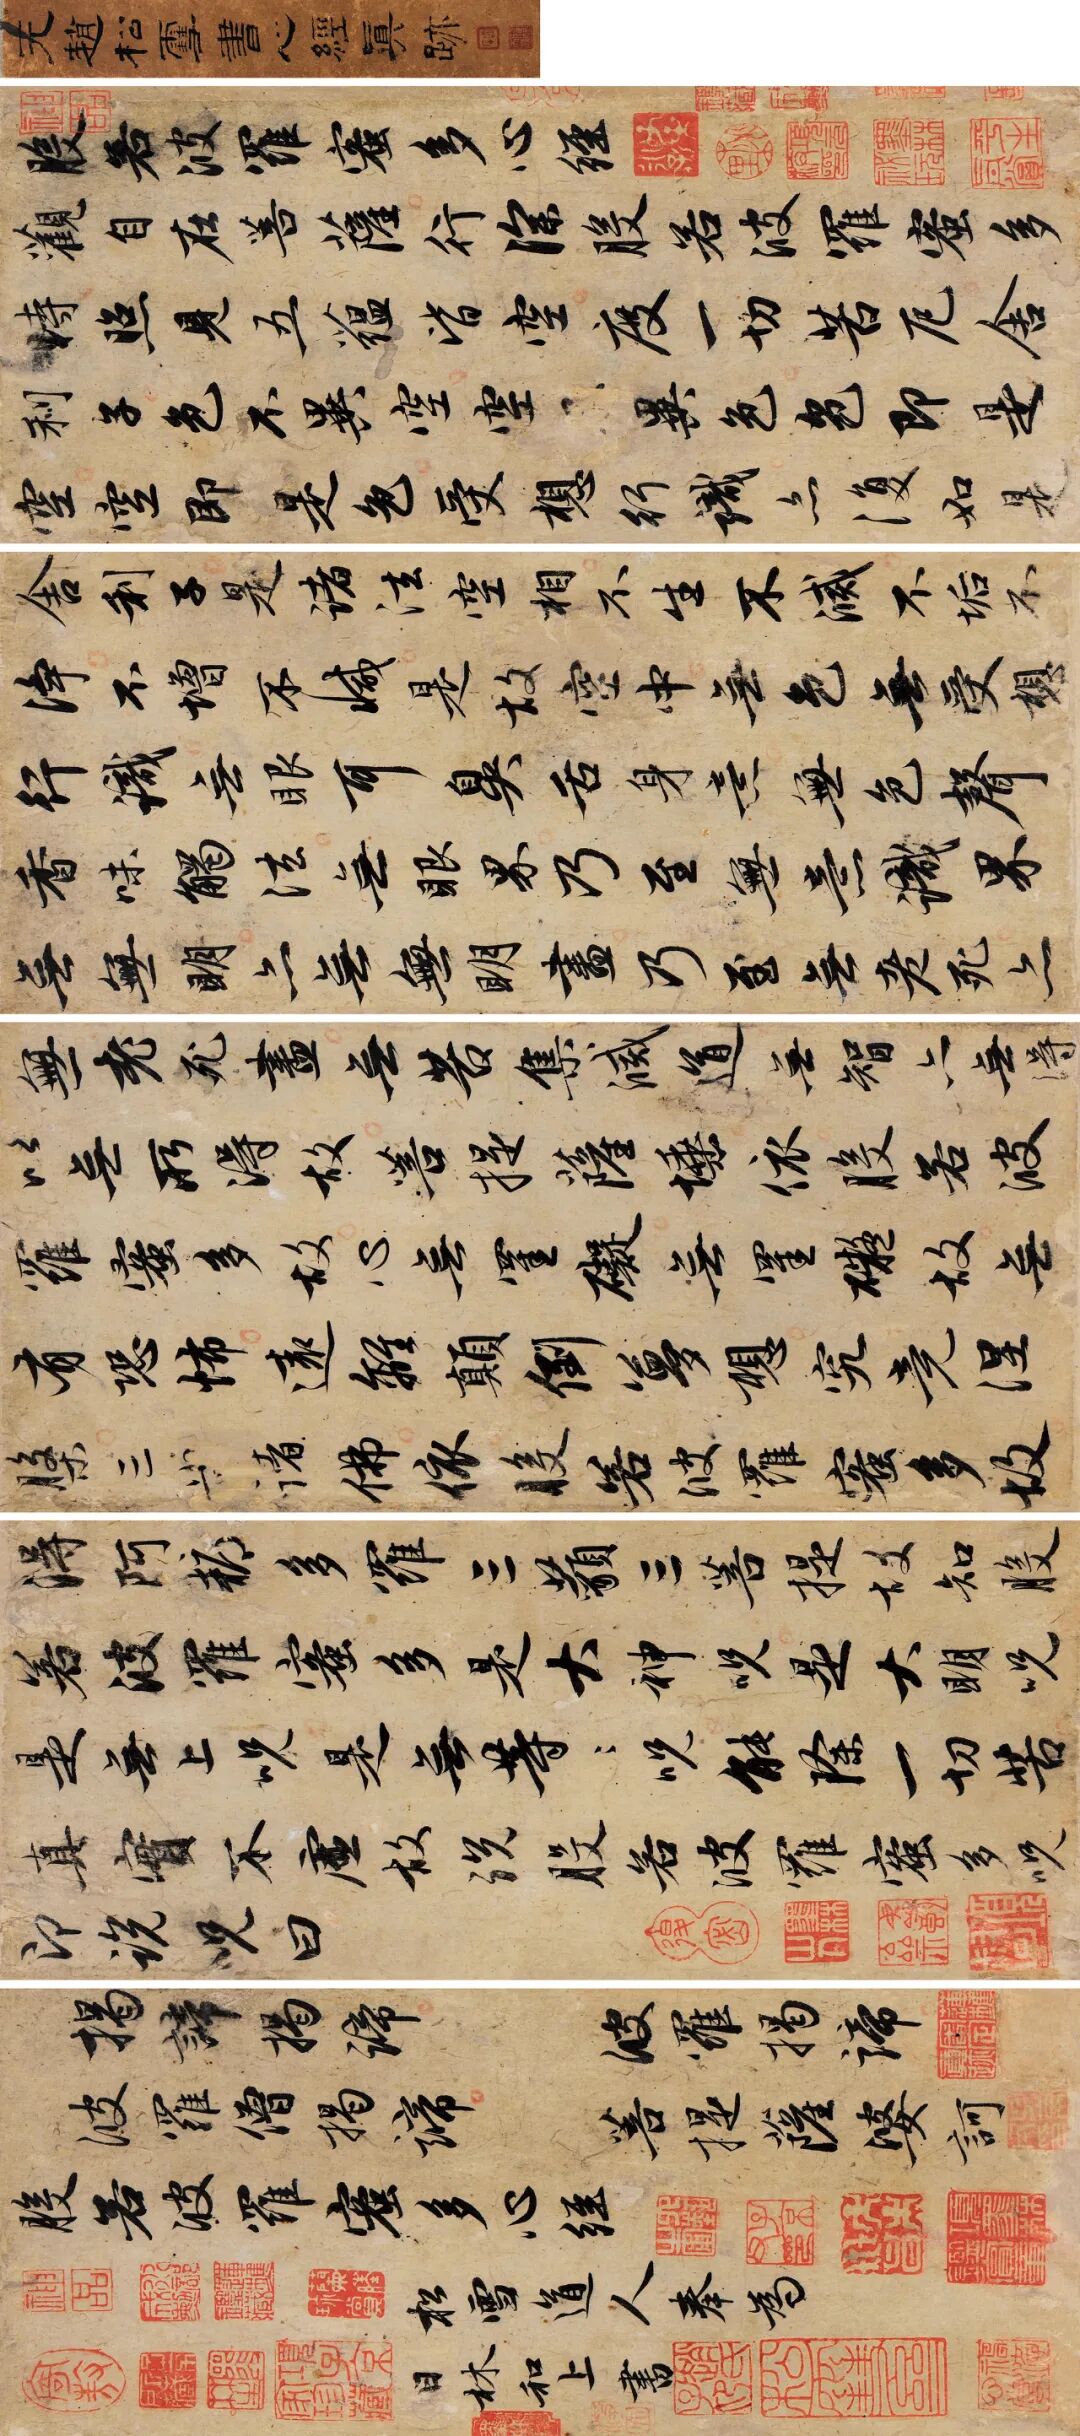 元趙松雪書心經真跡
般若波羅蜜多心經
觀自在菩薩行深般若波羅蜜多
時照見五蘊皆空度一切苦厄舍
利子色不異空空異色色即是
空空即是色受想行識亦復如是
舍利子是諸法空相不生不滅不垢不
淨不增不減是故空中無色無受想
行識無眼耳鼻舌身意無色聲
香味觸法無眼界乃至無意識界
無無明亦無無明盡乃至無老死亦
無老死盡無苦集滅道無智亦無得
以無所得故菩提薩埵依般若波
羅蜜多故心無罣礙無罣礙故無
有恐怖遠離顛倒夢想究竟涅
槃三世諸佛依般若波羅蜜多故
得阿耨多羅三藐三菩提故知般
若波羅蜜多是大神咒是大明咒
是無上咒是無等〻咒能除一切苦
真實不虛故說般若波羅蜜多咒
即說咒曰
揭諦揭諦 波羅揭諦
波羅僧揭諦 菩提薩婆訶
般若波羅蜜多心經
松雪道人奉為
日林和上書